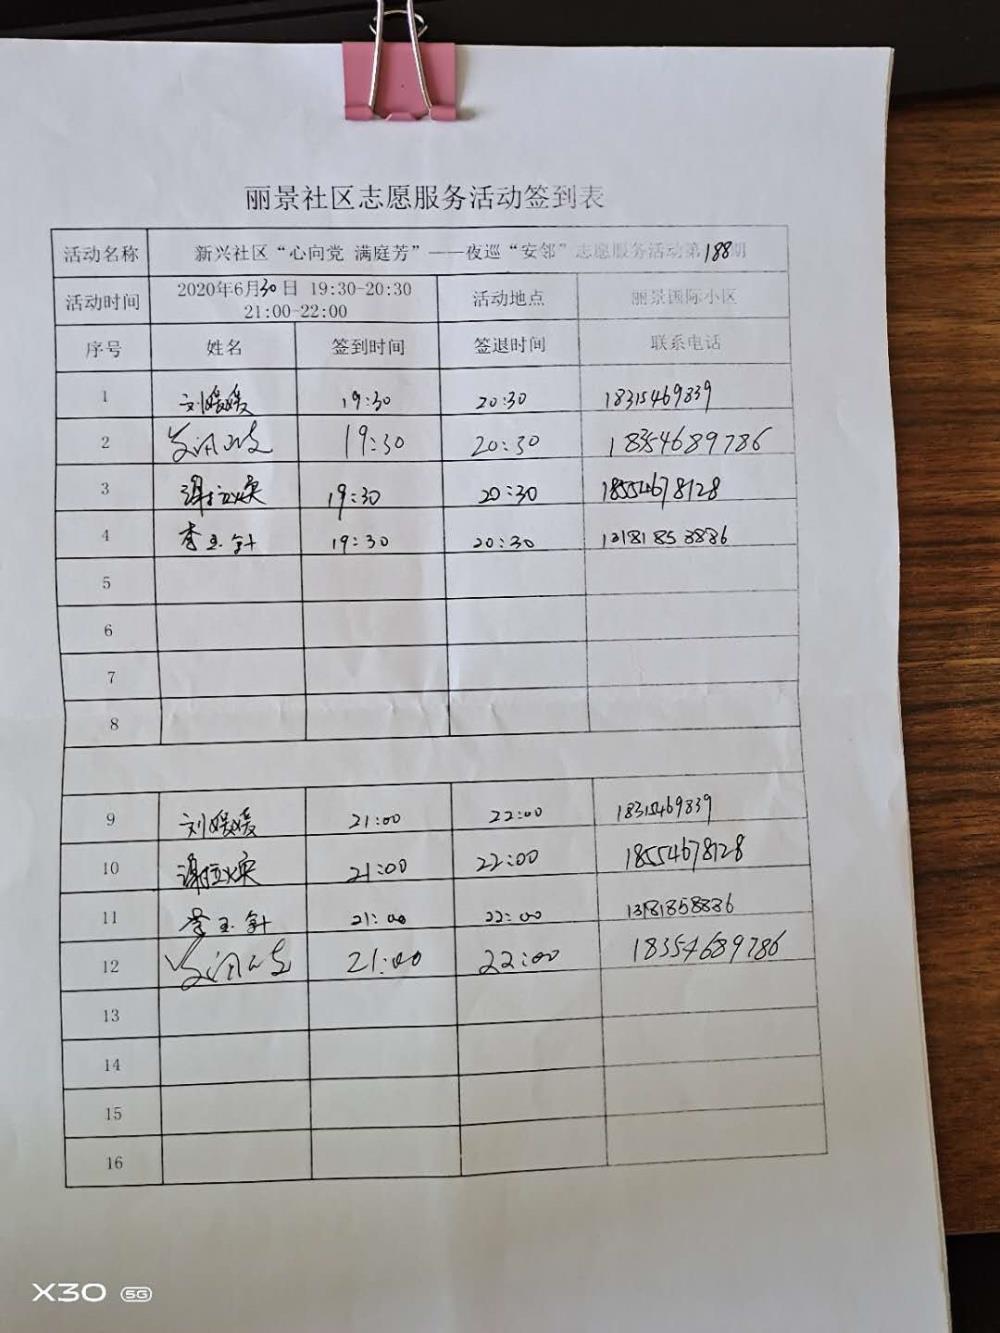 丽景社区志愿服务活动签到表
活动名称 新兴社区“心向党 满庭芳”——夜巡“安邻”志愿服务活动第188期
活动时间 2020年6月30日 19:30-20:30 活动地点 丽景国际小区
21:00-22:00
序号 姓名 签到时间 签退时间 联系电话
1 刘媛媛 19:30 20:30 18315469839
2 19:30 20:30 18354689786
3 19:30 20:30 18554678128
4 李玉针 19:30 20:30
5
6
7
8
9 刘媛媛 21:00 22:00 18315469839
10 21:00 22:00 18554678128
11 李玉针 21:00 22:00 13181858886
12 21:00 22:00 18354689786
13
14
15
16
X30 5G